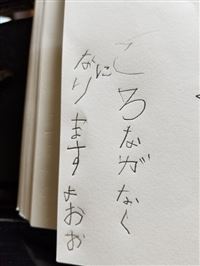 ころながなく
なりますよおぉ
に